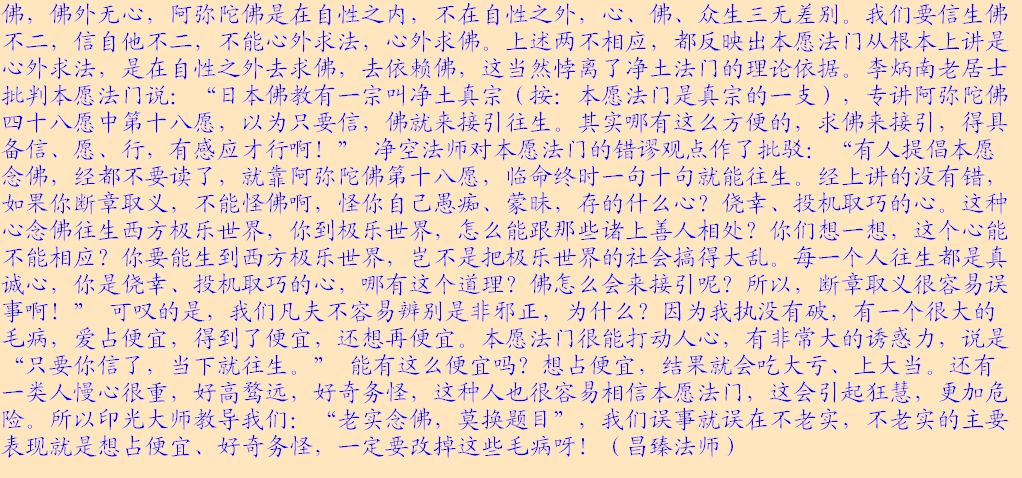 佛，佛外无心，阿弥陀佛是在自性之内，不在自性之外，心、佛、众生三无差别。我们要信生佛
不二，信自他不二，不能心外求法，心外求佛。上述两不相应，都反映出本愿法门从根本上讲是
心外求法，是在自性之外去求佛，去依赖佛，这当然悖离了净土法门的理论依据。李炳南老居士
批判本愿法门说：“日本佛教有一宗叫净土真宗（按：本愿法门是真宗的一支），专讲阿弥陀佛
四十八愿中第十八愿，以为只要信，佛就来接引往生。其实哪有这么方便的，求佛来接引，得具
备信、愿、行，有感应才行啊！” 净空法师对本愿法门的错谬观点作了批驳：“有人提倡本愿
念佛，经都不要读了，就靠阿弥陀佛第十八愿，临命终时一句十句就能往生。经上讲的没有错，
如果你断章取义，不能怪佛啊，怪你自己愚痴、蒙昧，存的什么心？侥幸、投机取巧的心。这种
心念佛往生西方极乐世界，你到极乐世界，怎么能跟那些诸上善人相处？你们想一想，这个心能
不能相应？你要能生到西方极乐世界，岂不是把极乐世界的社会搞得大乱。每一个人往生都是真
诚心，你是侥幸、投机取巧的心，哪有这个道理？佛怎么会来接引呢？所以，断章取义很容易误
事啊！” 可叹的是，我们凡夫不容易辨别是非邪正，为什么？因为我执没有破，有一个很大的
毛病，爱占便宜，得到了便宜，还想再便宜。本愿法门很能打动人心，有非常大的诱惑力，说是
“只要你信了，当下就往生。” 能有这么便宜吗？想占便宜，结果就会吃大亏、上大当。还有
一类人慢心很重，好高骛远，好奇务怪，这种人也很容易相信本愿法门，这会引起狂慧，更加危
险。所以印光大师教导我们：“老实念佛，莫换题目”，我们误事就误在不老实，不老实的主要
表现就是想占便宜、好奇务怪，一定要改掉这些毛病呀！（昌臻法师）